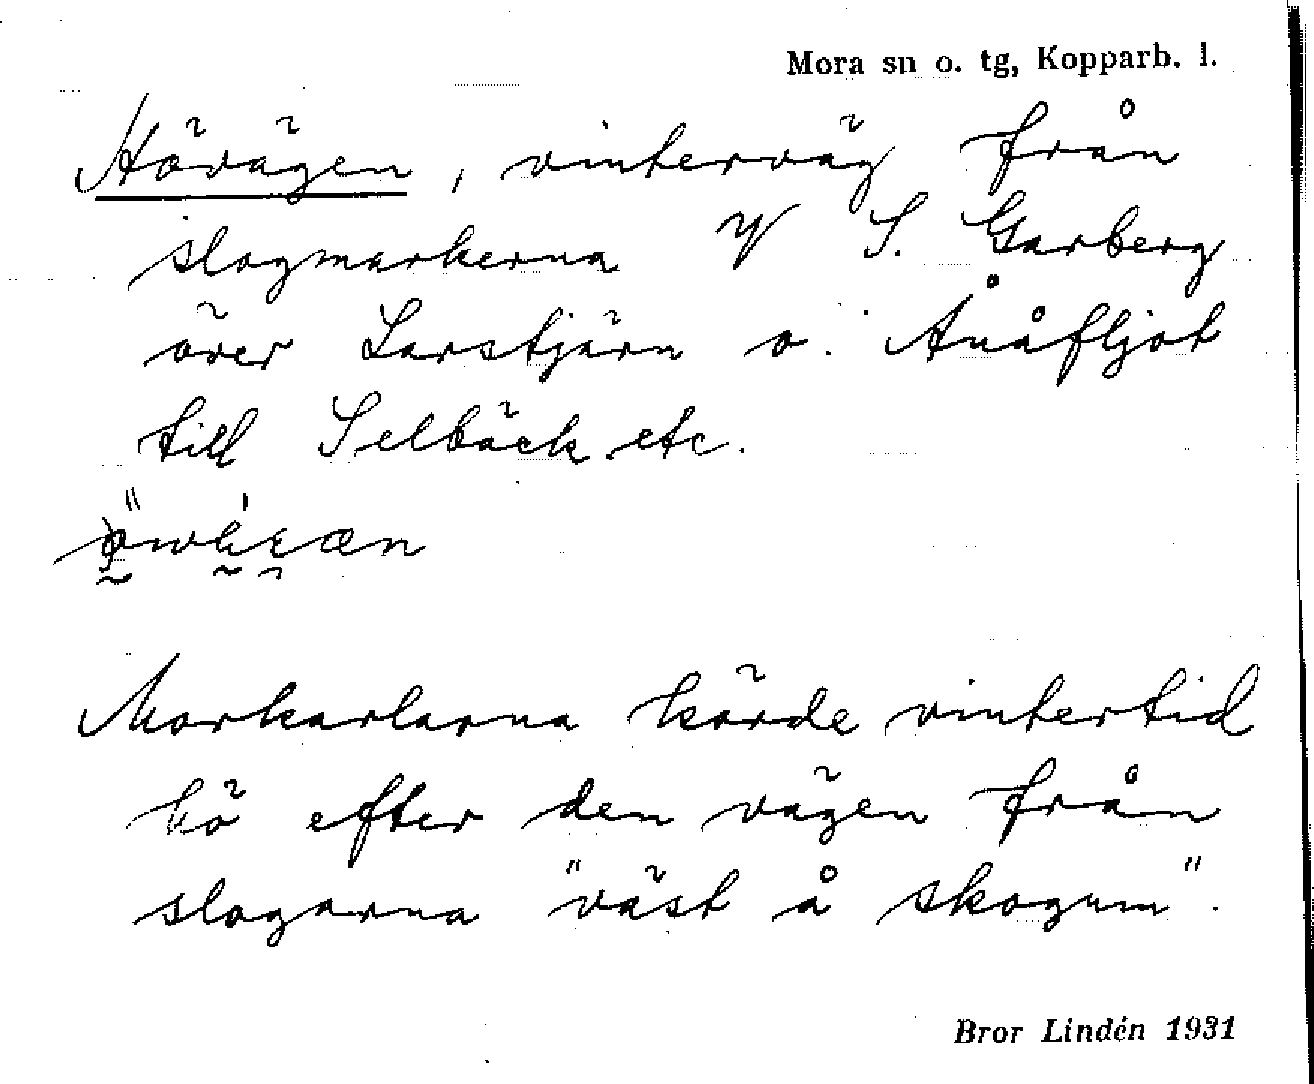 Mora sn o. tg, Kopparb. l.
Hövägen, vinterväg från
slogmarkerna V S. Garberg
över Larstjärn o. Ånåfljot
till Selbäck etc.
Morkarlarna körde vintertid
hö efter den vägen från
slogarna "väst å skogum".
Bror Lindén 1931